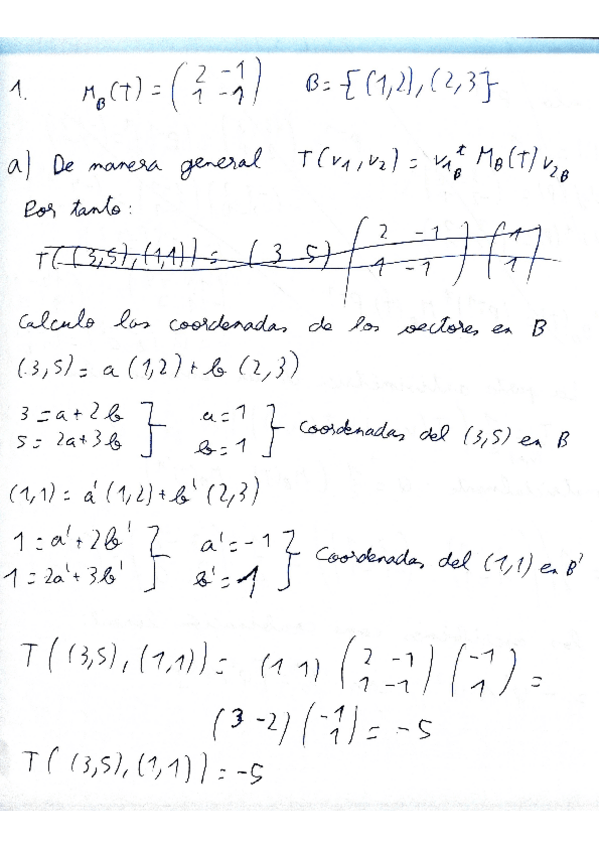 1. M_B(T) = (2 -1; 1 -1) B = {(1,2), (2,3}
a) De manera general T(v1, v2) = v1_B^t M_B(T) v2_B
Por tanto:
T((3,5), (1,1)) = (3 5) (2 -1; 1 -1) (1; 1)
Calculo las coordenadas de los vectores en B
(3,5) = a (1,2) + b (2,3)
3 = a + 2b } a = 1 } Coordenadas del (3,5) en B
5 = 2a + 3b b = 1
(1,1) = a' (1,2) + b' (2,3)
1 = a' + 2b' } a' = -1 } Coordenadas del (1,1) en B'
1 = 2a' + 3b' b' = 1
T((3,5), (1,1)) = (1 1) (2 -1; 1 -1) (-1; 1) =
(3 -2) (-1; 1) = -5
T((3,5), (1,1)) = -5